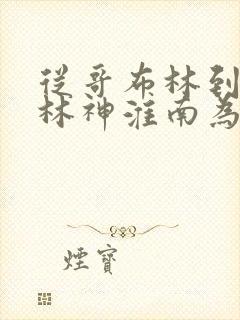 從哥布林到
林神淮南為
煙寶